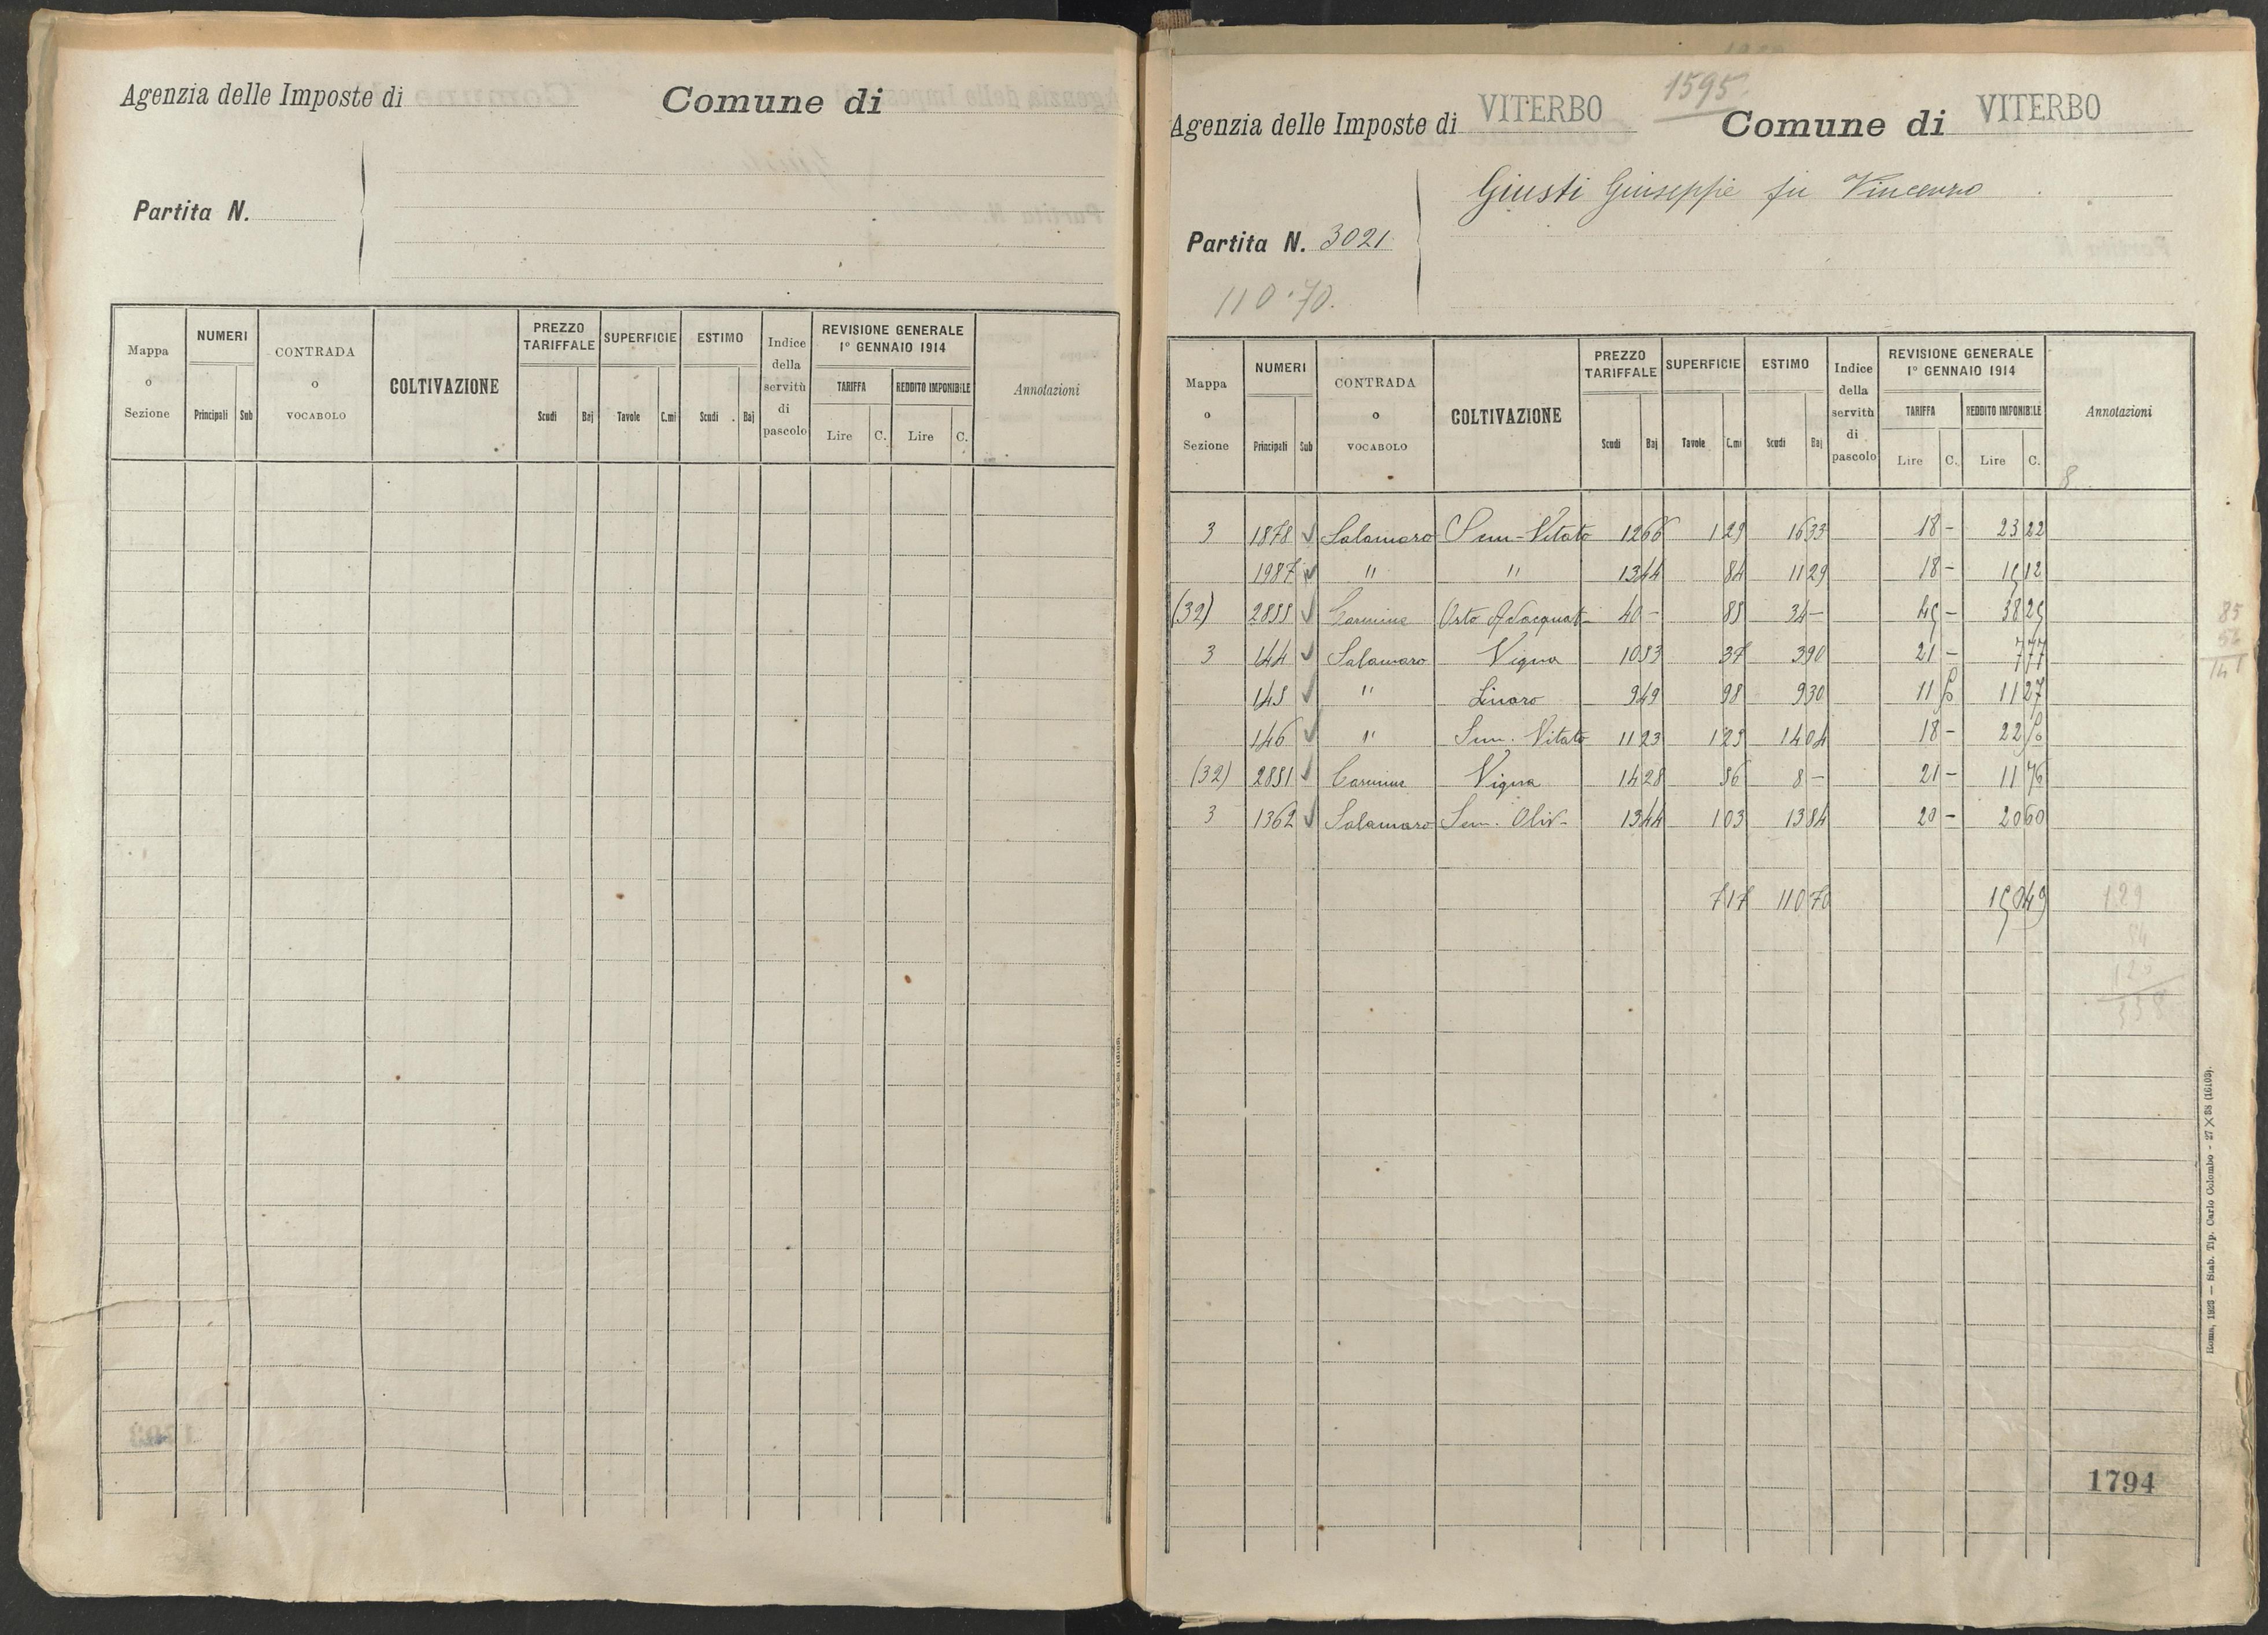 Agenzia delle Imposte di
Comune di
Partita N.
Mappa o Sezione
NUMERI
Principali Sub
CONTRADA o VOCABOLO
COLTIVAZIONE
PREZZO TARIFFALE
Scudi Baj
SUPERFICIE
Tavole C.mi
ESTIMO
Scudi Baj
Indice della servitù di pascolo
REVISIONE GENERALE
1° GENNAIO 1914
TARIFFA
Lire C.
REDDITO IMPONIBILE
Lire C.
Annotazioni
1595
Agenzia delle Imposte di VITERBO
Comune di VITERBO
Giusti Giuseppe fu Vincenzo
Partita N. 3021
110.70.
Mappa o Sezione
NUMERI
Principali Sub
CONTRADA o VOCABOLO
COLTIVAZIONE
PREZZO TARIFFALE
Scudi Baj
SUPERFICIE
Tavole C.mi
ESTIMO
Scudi Baj
Indice della servitù di pascolo
REVISIONE GENERALE
1° GENNAIO 1914
TARIFFA
Lire C.
REDDITO IMPONIBILE
Lire C.
Annotazioni
8
3 1878 Salamaro Sem-Vitato 12 66 1 29 16 33 18 - 23 22
1987 " " 13 44 84 11 29 18 - 15 12
(32) 2855 Carmine Orto Adacquat- 40 - 85 34 - 45 - 38 25
3 144 Salamaro Vigna 10 53 37 3 90 21 - 7 77
145 " Linaro 9 49 98 9 30 11 50 11 27
146 " Sem. Vitato 11 23 1 25 14 04 18 - 22 50
(32) 2851 Carmine Vigna 14 28 56 8 - 21 - 11 76
3 1362 Salamaro Sem. Oliv- 13 44 1 03 13 84 20 - 20 60
7 17 110 70 150 49
85
56
141
129
84
125
338
1794
Roma, 1923 — Stab. Tip. Carlo Colombo - 27 × 38 (16103).